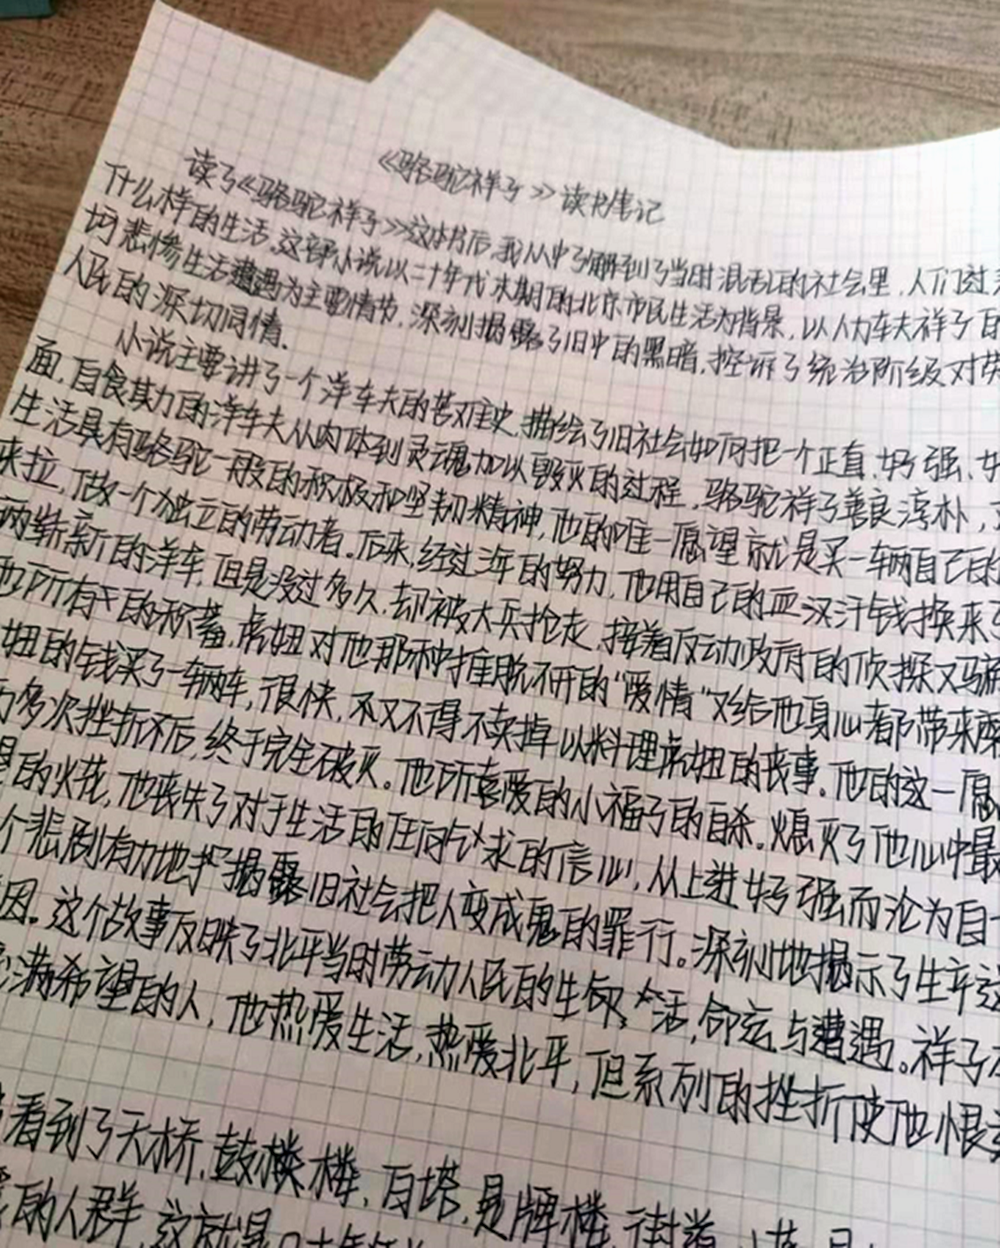 《骆驼祥子》读书笔记
读了《骆驼祥子》这本书后,我从中了解到了当时混乱的社会里,人们过
什么样的生活,这部小说以二十年代末期的北京市民生活为背景,以人力车夫祥子的
坷悲惨生活遭遇为主要情节,深刻揭露了旧中的黑暗,控诉了统治阶级对劳
人民的深切同情.
小说主要讲了一个洋车夫的苦难史,描绘了旧社会如何把一个正直、好强、
面,自食其力的洋车夫从肉体到灵魂加以毁灭的过程,骆驼祥子善良淳朴,
生活具有骆驼一般的积极和坚韧精神,他的唯一愿望就是买一车辆自己的
来拉,做一个独立的劳动者。后来,经过三年的努力,他用自己的血汉汗钱换来了
两崭新的洋车,但是没过多久,却被大兵抢走,接着反动政府的侦探又骗
也所有的积蓄,虎妞对他那种推脱不开的“爱情”又给他身心都带来
妞的钱买了一辆车,很快,不又不得不卖掉以料理虎妞的丧事,他的这一愿
多次挫折后,终于完全破灭。他所喜爱的小福子的自杀,熄灭了他心中最
的火花,他丧失了对于生活的任何企求的信心,从上进好强而沦为自
个悲剧有力地揭露旧社会把人变成鬼的罪行。深刻地揭示了
因。这个故事反映了北平当时劳动人民的生活,命运与遭遇。祥子
满希望的人,他热爱生活,热爱北平,但系列的挫折使他恨
看到了天桥,鼓楼楼,白塔,是牌楼,街道,
的人群,这就是